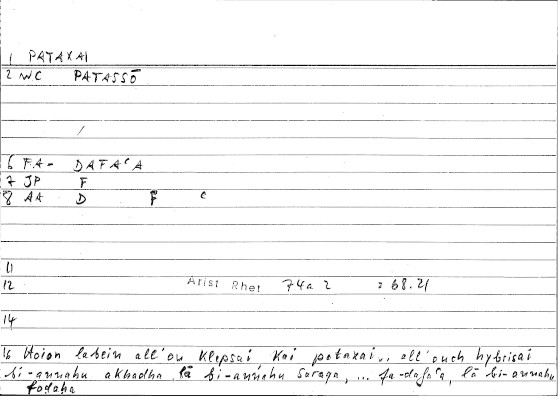 1 PATAXAI
2 WC PATASSŌ
6 FA- DAFAʿA
7 JP F
8 AA D F ʿ
11
12 Arist Rhet 74a 2 = 68.21
14
16 Hoion labein all'ou klepsai kai pataxai,, all'ouch hybrisai
bi-annahu akhadha lā bi-annahu saraqa, ... fa-dafaʿa, lā bi-annahu
fadaha